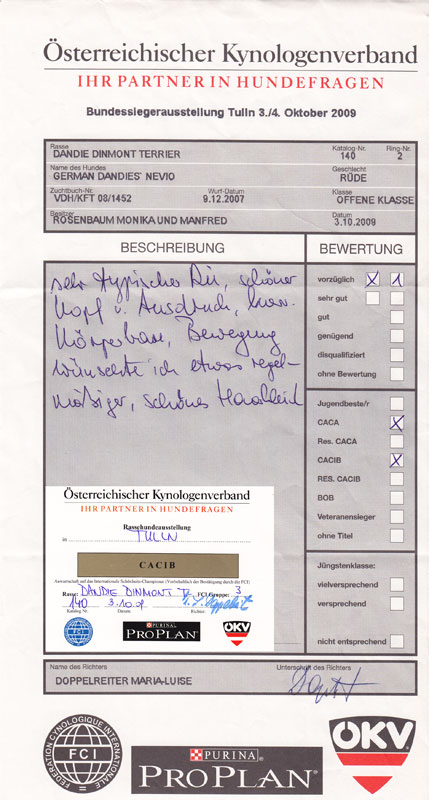 Österreichischer Kynologenverband
IHR PARTNER IN HUNDEFRAGEN
Bundessiegerausstellung Tulln 3./4. Oktober 2009
Rasse Katalog-Nr. Ring-Nr.
DANDIE DINMONT TERRIER 140 2
Name des Hundes Geschlecht
GERMAN DANDIES' NEVIO RÜDE
Zuchtbuch-Nr. Wurf-Datum Klasse
VDH/KFT 08/1452 9.12.2007 OFFENE KLASSE
Besitzer Datum
ROSENBAUM MONIKA UND MANFRED 3.10.2009
BESCHREIBUNG BEWERTUNG
sehr typischer Rü, schöner
Kopf u. Ausdruck, korr.
Körperbau, Bewegung
wünschte ich etwas regel-
mäßiger, schönes Haarkleid
vorzüglich X 1
sehr gut
gut
genügend
disqualifiziert
ohne Bewertung
Jugendbeste/r
CACA X
Res. CACA
CACIB X
RES. CACIB
BOB
Veteranensieger
ohne Titel
Jüngstenklasse:
vielversprechend
versprechend
nicht entsprechend
Österreichischer Kynologenverband
IHR PARTNER IN HUNDEFRAGEN
Rassehundeausstellung
in TULLN
CACIB
Anwartschaft auf das Internationale Schönheits-Championat (Vorbehaltlich der Bestätigung durch die FCI)
Rasse: DANDIE DINMONT T. FCI Gruppe: 3
140 3.10.09
Katalog Nr. Datum Richter
FCI
PURINA
PRO PLAN
ÖKV
Name des Richters Unterschrift des Richters
DOPPELREITER MARIA-LUISE
FEDERATION CYNOLOGIQUE INTERNATIONALE
FCI
PURINA
PRO PLAN
ÖKV